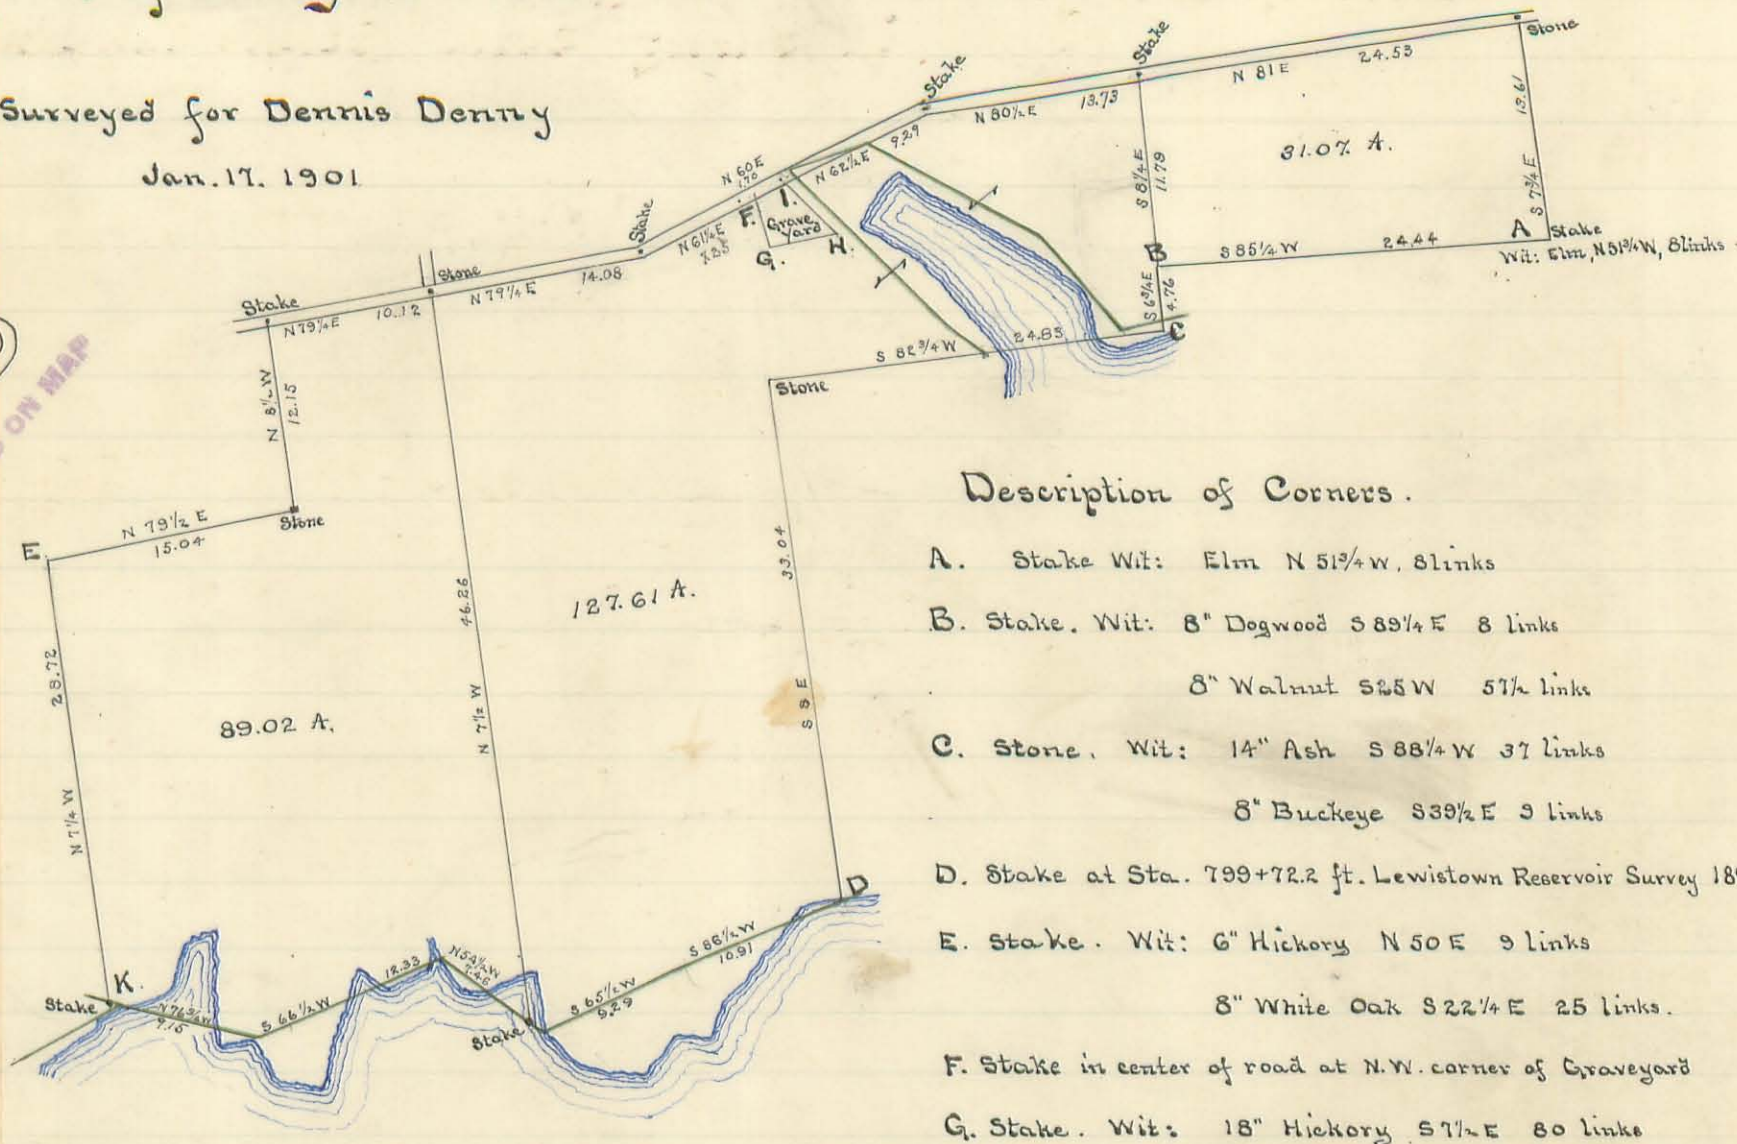 Surveyed for Dennis Denny
Jan. 17. 1901
ON MAP
Stake
Stake
Stone
N 81 E 24.53
N 80½ E 13.73
9.29
N 62½ E
N 60 E
1.70
13.61
S 7¾ E
31.07 A.
S 8¼ E
11.79
A Stake
Wit: Elm, N 51¾ W, 8 links
B
S 85¼ W 24.44
S 6¾ E
4.76
C
F.
I.
Grave
Yard
G.
H.
N 61¼ E
Stake
Stone
N 79¼ E 14.08
Stake
N 79¼ E 10.12
S 82¾ W 24.83
Stone
N 8½ W
12.15
Stone
E
N 79½ E
15.04
33.04
S 8 E
46.26
N 7½ W
127.61 A.
28.72
N 7¼ W
89.02 A.
D
S 86½ W
10.91
S 65½ W
9.29
N 54½ W
7.46
Stake
12.33
S 66½ W
K.
Stake
N 76¾ W
9.15
Description of Corners.
A. Stake Wit: Elm N 51¾ W, 8 links
B. Stake. Wit: 8" Dogwood S 89¼ E 8 links
8" Walnut S 25 W 57½ links
C. Stone. Wit: 14" Ash S 88¼ W 37 links
8" Buckeye S 39½ E 9 links
D. Stake at Sta. 799+72.2 ft. Lewistown Reservoir Survey 18
E. Stake. Wit: 6" Hickory N 50 E 9 links
8" White Oak S 22¼ E 25 links.
F. Stake in center of road at N.W. corner of Graveyard
G. Stake. Wit: 18" Hickory S 7½ E 80 links